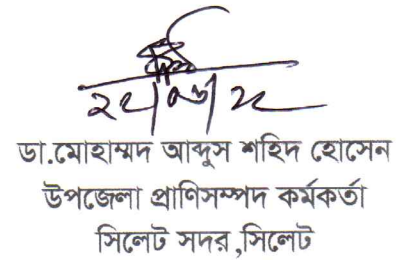 ডা.মোহাম্মদ আব্দুস শহিদ হোসেন
উপজেলা প্রাণিসম্পদ কর্মকর্তা
সিলেট সদর ,সিলেট